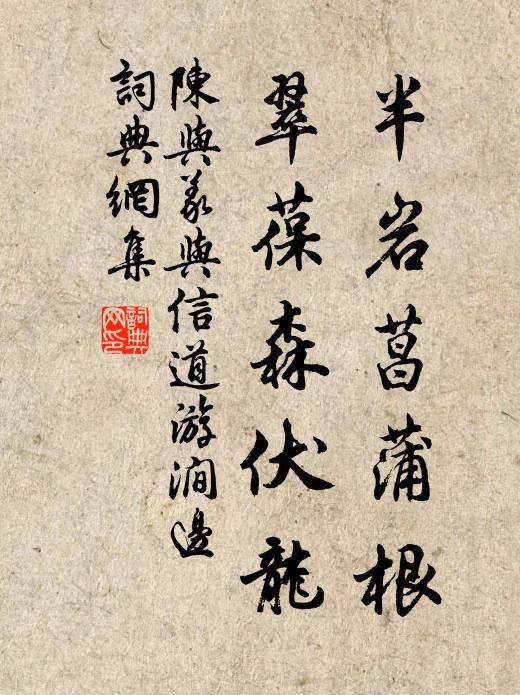 半岩菖蒲根
翠葆森伏龍
陳與義與信道游澗邊
詞典網集
詞典
网印